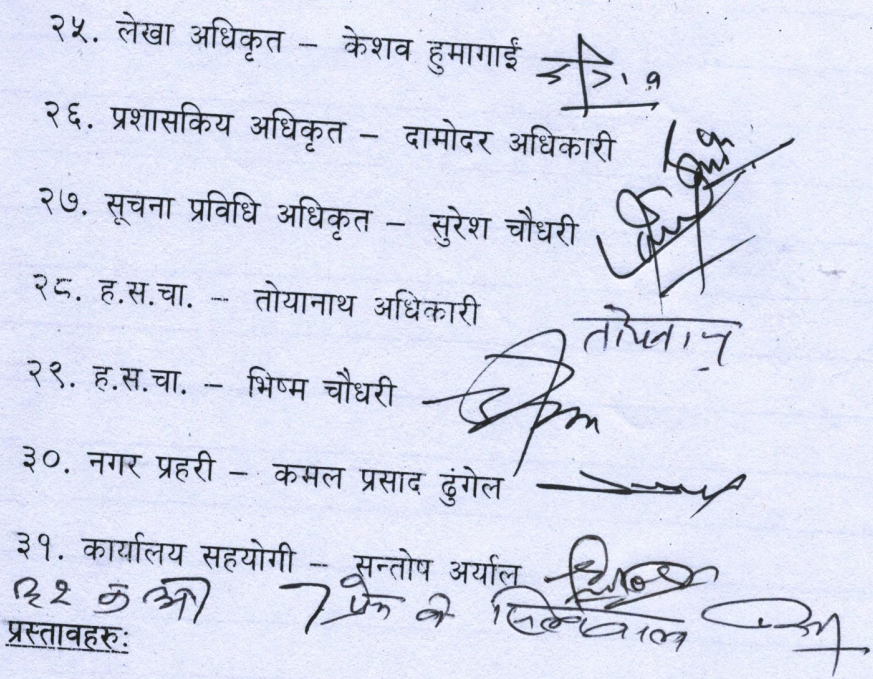 २५. लेखा अधिकृत – केशव हुमागाईं
२६. प्रशासकिय अधिकृत – दामोदर अधिकारी
२७. सूचना प्रविधि अधिकृत – सुरेश चौधरी
२८. ह.स.चा. – तोयानाथ अधिकारी
२९. ह.स.चा. – भिष्म चौधरी
३०. नगर प्रहरी – कमल प्रसाद ढुंगेल
३१. कार्यालय सहयोगी – सन्तोष अर्याल
प्रस्तावहरु: